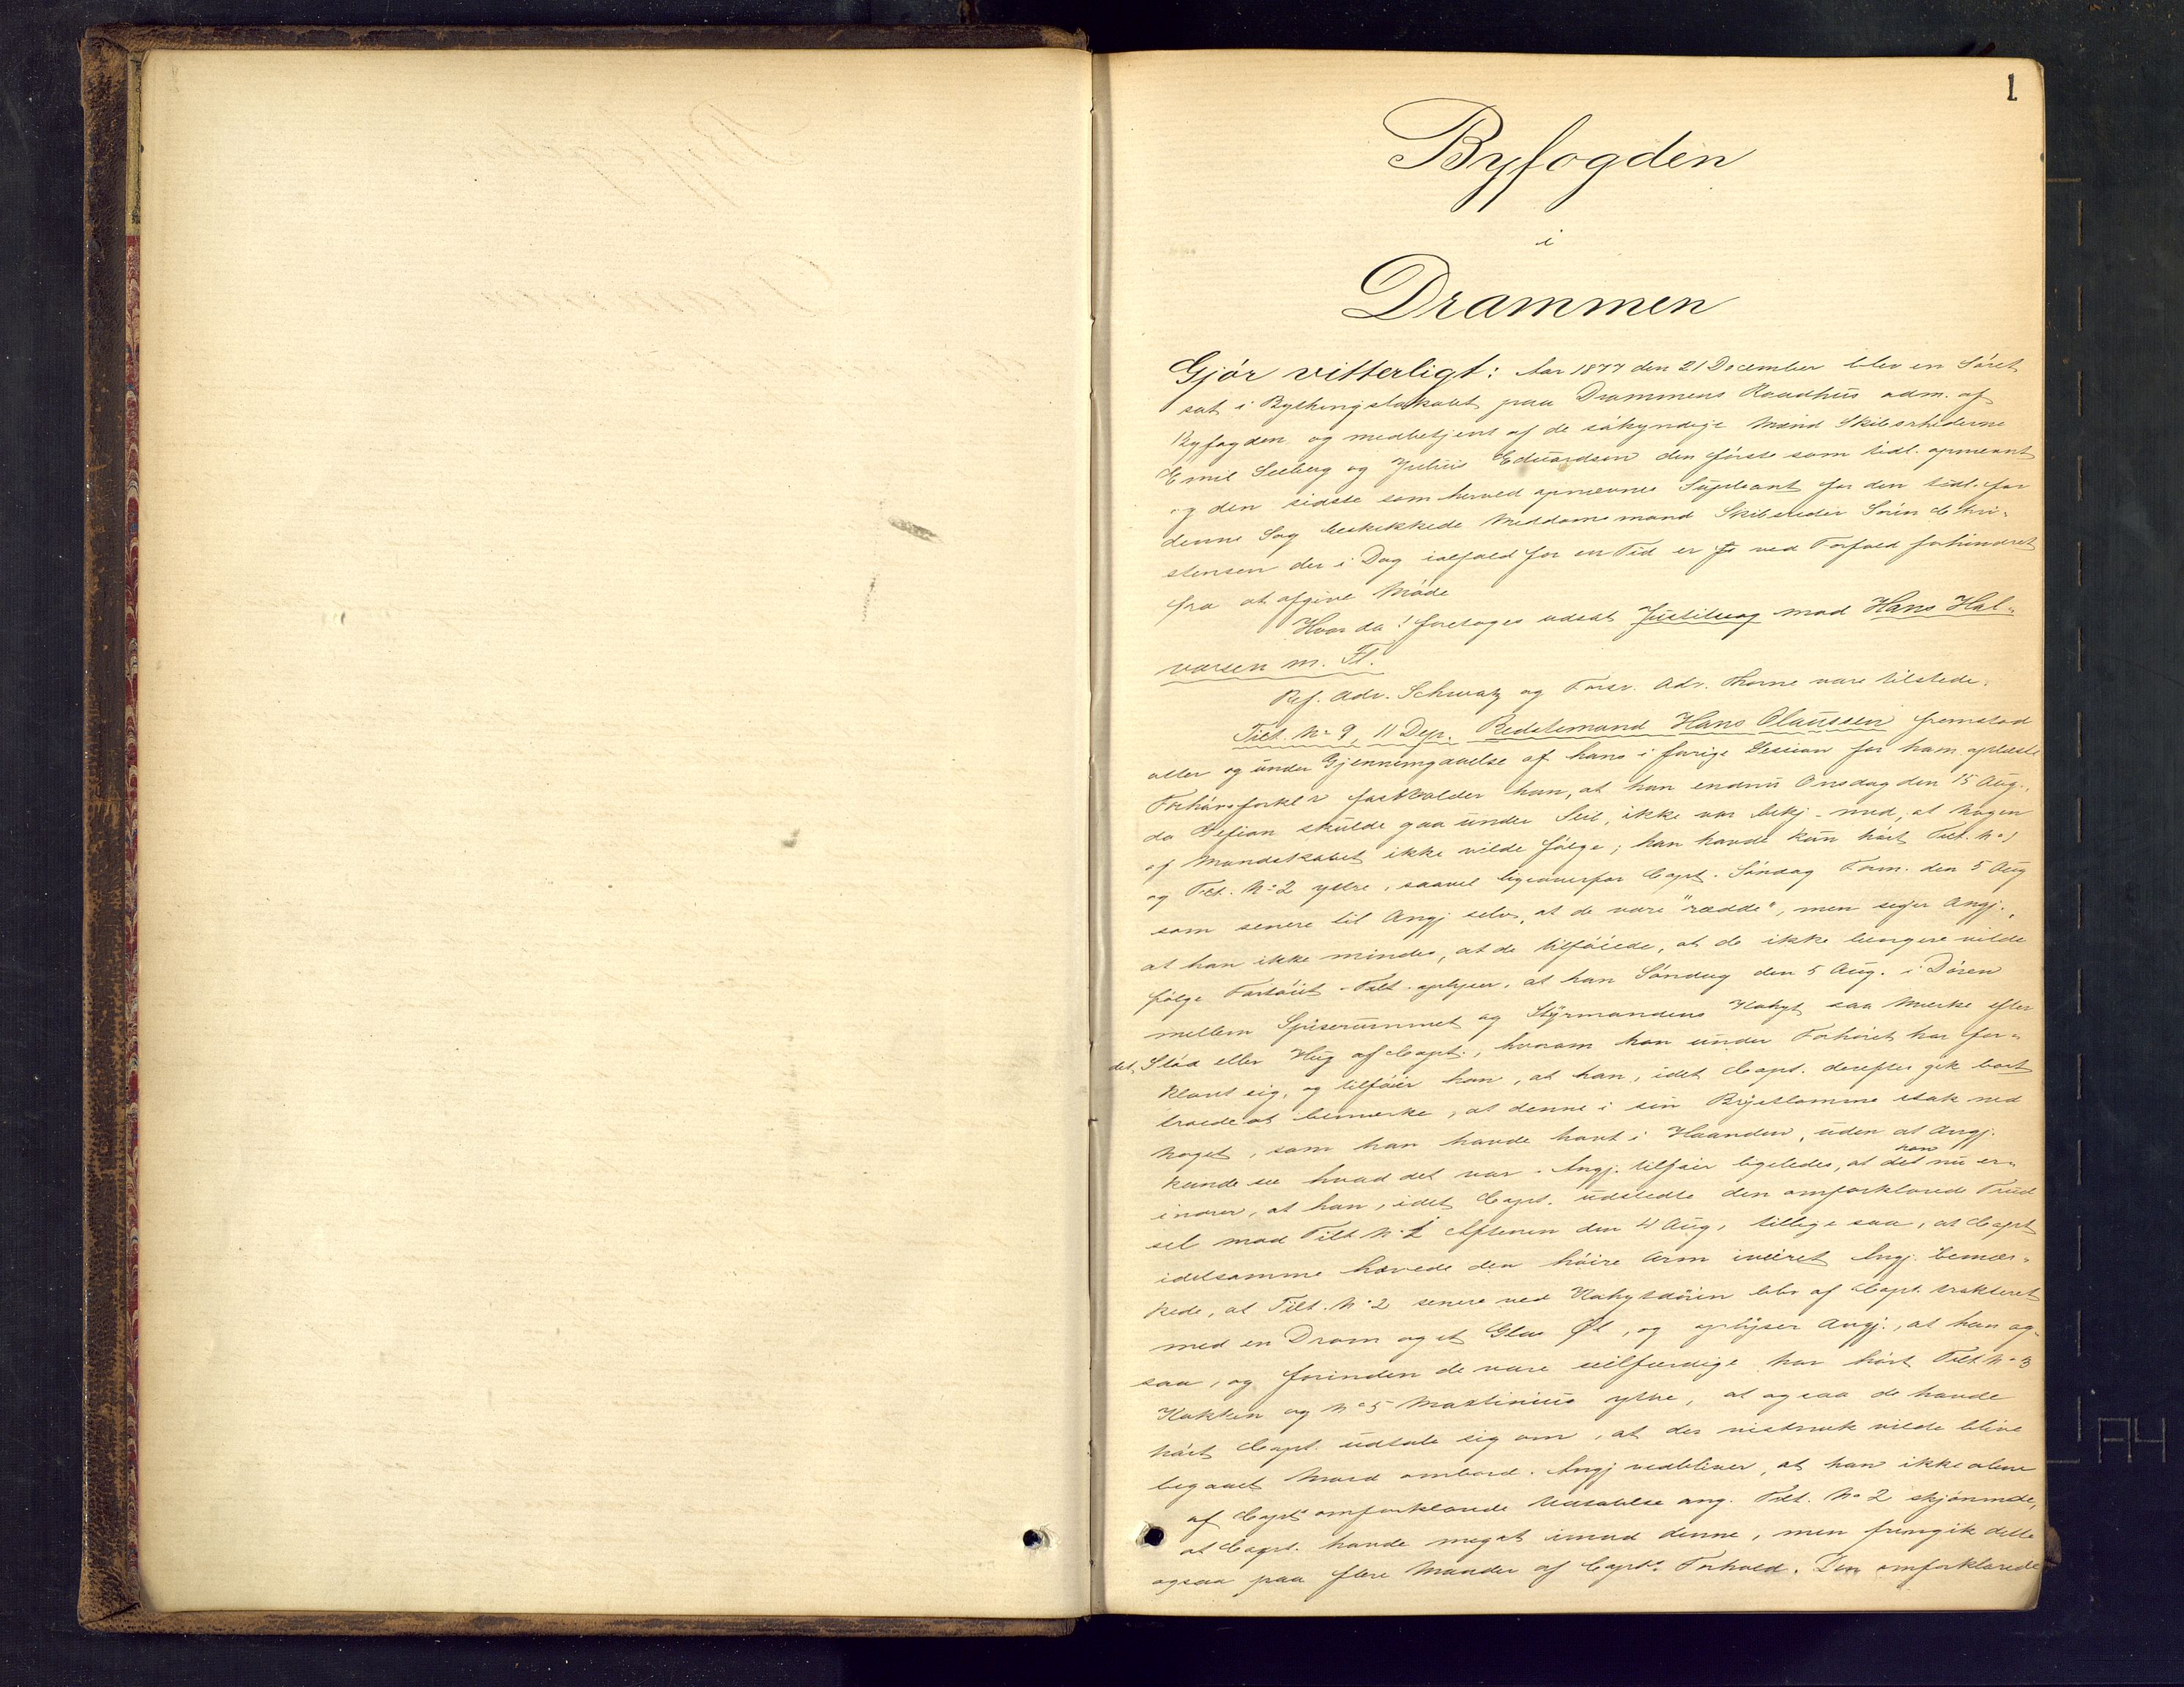 1
Byfogden
i
Drammen
Gjör vitterligt: Aar 1877 den 21 December blev en Söret
sat i Bythingslokalet paa Drammens Raadhus adm. af
Byfogden og medbetjent af de sökyndige Mænd Skibsrhederne
Emil Seeberg og Julius Eduardsen den förste som tidl. opnævnt
og den sidste som herved opnævnes Supleant for den tidl. for
denne Sag beskikkede Meddomsmand Skibsreder Sörén Chri-
stensen der i Dag ialfald for en Tid er ved Forfald forhindret
fra at afgive Möde
Hvor da! foretoges udsat Justitssag mod Hans Hal-
vorsen m. Fl.
Ref. Adv. Schwatz og Forsv. Adv. Thorne vare tilstede.
Tilt. No 9, 11 Dep. Bedstemand Hans Olaussen fremstod
atter og under Gjennemgaaelse af hans i forige Session for ham oplæste
Forhörsforkl. fastholder han, at han endnu Onsdag den 15 Aug.,
da Gefion skulde gaa under Seil, ikke var bekj. med, at Nogen
af Mandskabet ikke vilde fölge; han havde kun hört Tilt. No 1
og Tilt. No 2 yttre, saavel ligeoverfor Capt. Söndag Form. den 5 Aug
som senere til Angj selv, at de vare "rædde", men siger Angj.,
at han ikke mindes, at de tilföiede, at de ikke længere vilde
fölge Fartöiet. Tilt. oplyser, at han Söndag den 5 Aug. i Dören
mellem Spiserummet og Styrmandens Kahyt saa Mærke efter
det Stöd eller Hug af Capt., hvorom han under Forhöret har for-
klaret sig, og tilföier han, at han, idet Capt. derefter gik bort
troede at bemærke, at denne i sin Brystlomme stak ned
Noget, som han havde havt i Haanden, uden at Angj.
kunde se hvad det var. Angj. tilföier ligeledes, at det han nu er-
indrer, at han, idet Capt. udstedte den omforklarede Trud
sel mod Tilt No 2 Aftenen den 4 Aug, tillige saa, at Capt
idetsamme hævede den höire Arm iveiret Angj. bemær-
kede, at Tilt. No 2 senere ved Kahytsdören blev af Capt. trakteret
med en Dram og et Glas Øl, og oplyser Angj., at han og-
saa, og forinden de vare seilfærdige har hört Tilt No 3
Kokken og No 5 Mastinius yttre, at ogsaa de havde
hört Capt. udtale sig om, at der vistnok vilde blive
begaaet Mord ombord. Angj vedbliver, at han ikke alene
af Capts omforklarede Udtalelse ang. Tilt. No 2 skjönnede,
at Capt. havde meget imod denne, men fremgik dette
ogsaa paa flere Maader af Capts. Forhold. Den omforklarede